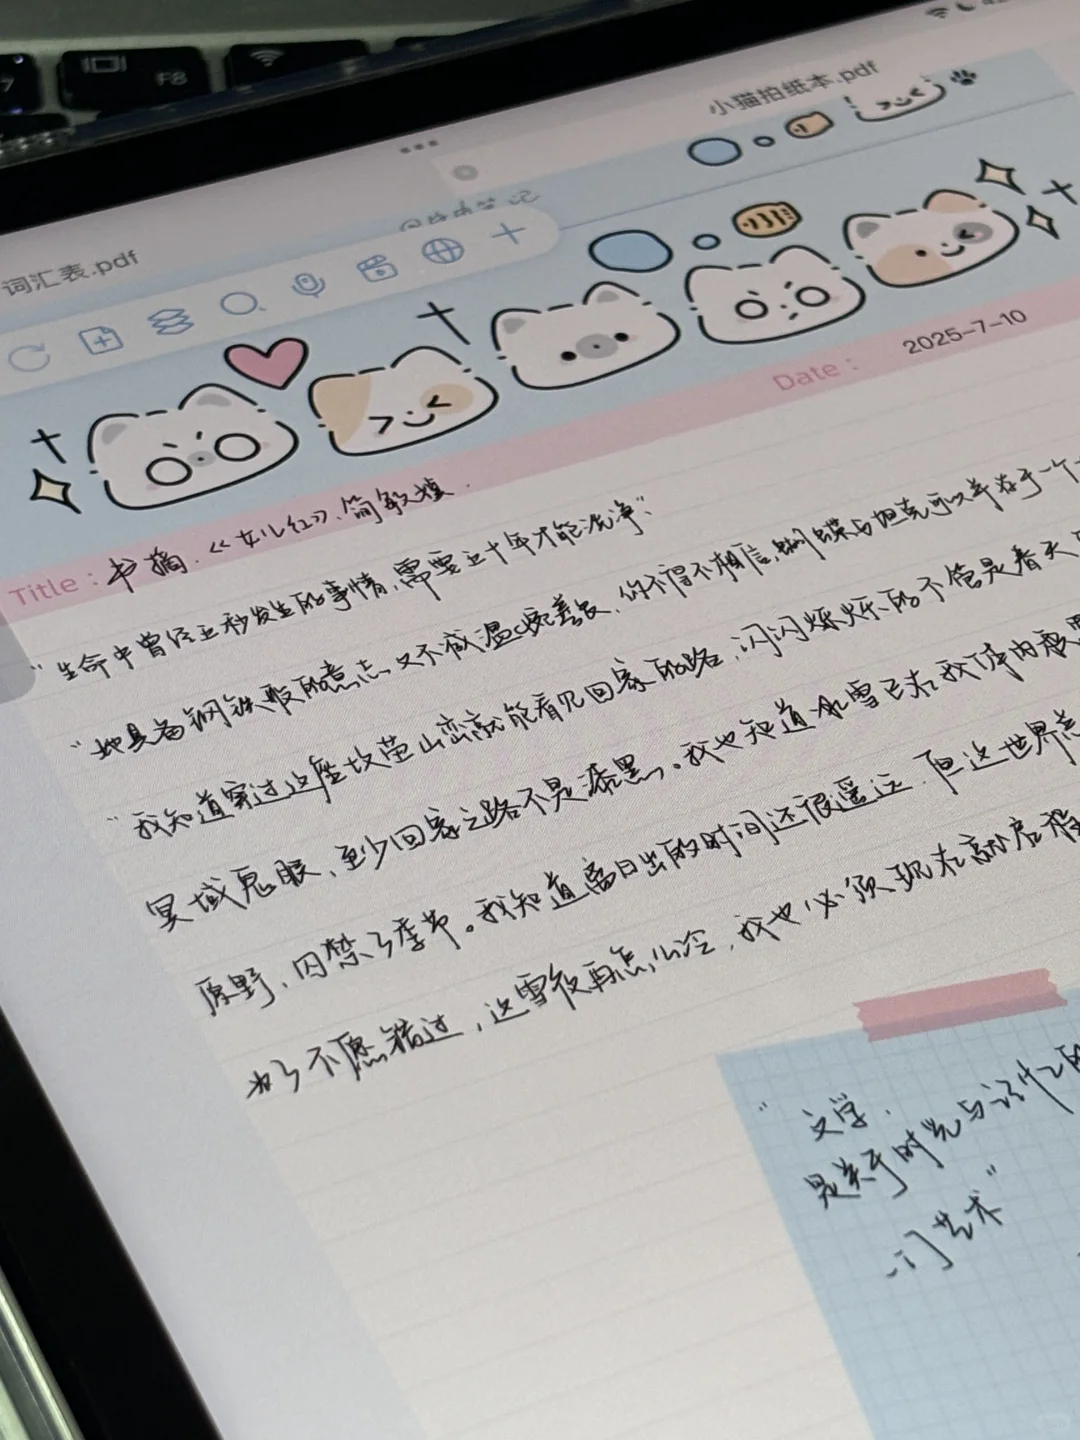 F8
小猫拍纸本.pdf
词汇表.pdf
Date: 2025-7-10
Title: 书摘.《女儿红》、简敏媜.
"生命中曾经五秒发生的事情,需要五十年才能洗净"
"她具备钢铁般的意志,又不减温婉善良,你不得不相信,蝴蝶与坦克可以并存于一个
"我知道穿过这座坟茔山峦就能看见回家的路,闪闪烁烁的不管是春天
冥域鬼眼、至少回家之路不是漆黑。我也知道冰雪已在我体内
原野、囚禁了季节。我知道离日出的时间还很遥远,但这世界
为了不愿错过,这雪夜再怎么冷,我也必须现在就启程
"文学,
是关于时光与记忆的
一门艺术"